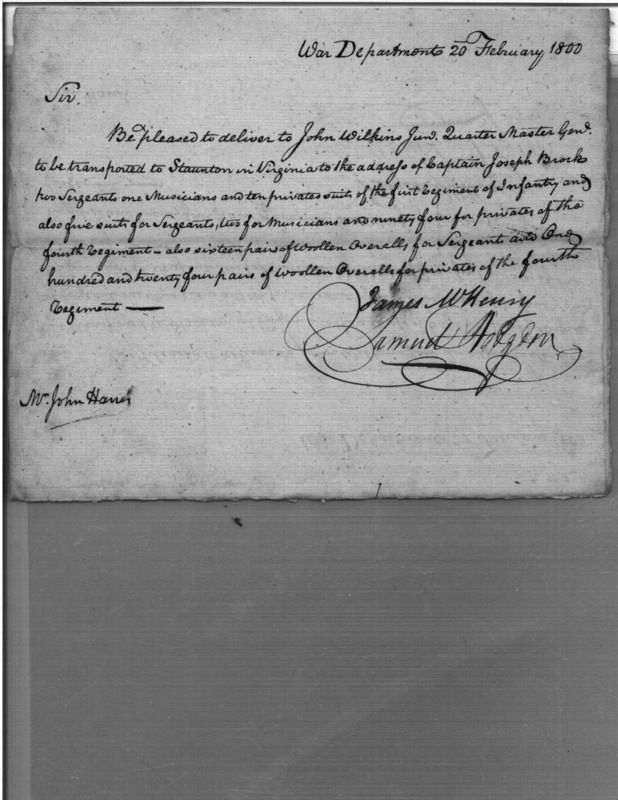 War Department 20 February 1800
Sir.
Be pleased to deliver to John Wilkins Junr. Quarter Master Genl.
to be transported to Staunton in Virginia to the address of Captain Joseph Brock
two Sergeants one Musicians and ten privates suits of the first Regiment of Infantry and
also five suits for Sergeants, two for Musicians and ninety four for privates of the
fourth Regiment - also sixteen pairs of Woollen Overalls for Sergeant and One
hundred and twenty four pairs of Woollen Overalls for privates of the fourth
Regiment —
James McHenry
Samuel Hodgdon
Mr. John Harris